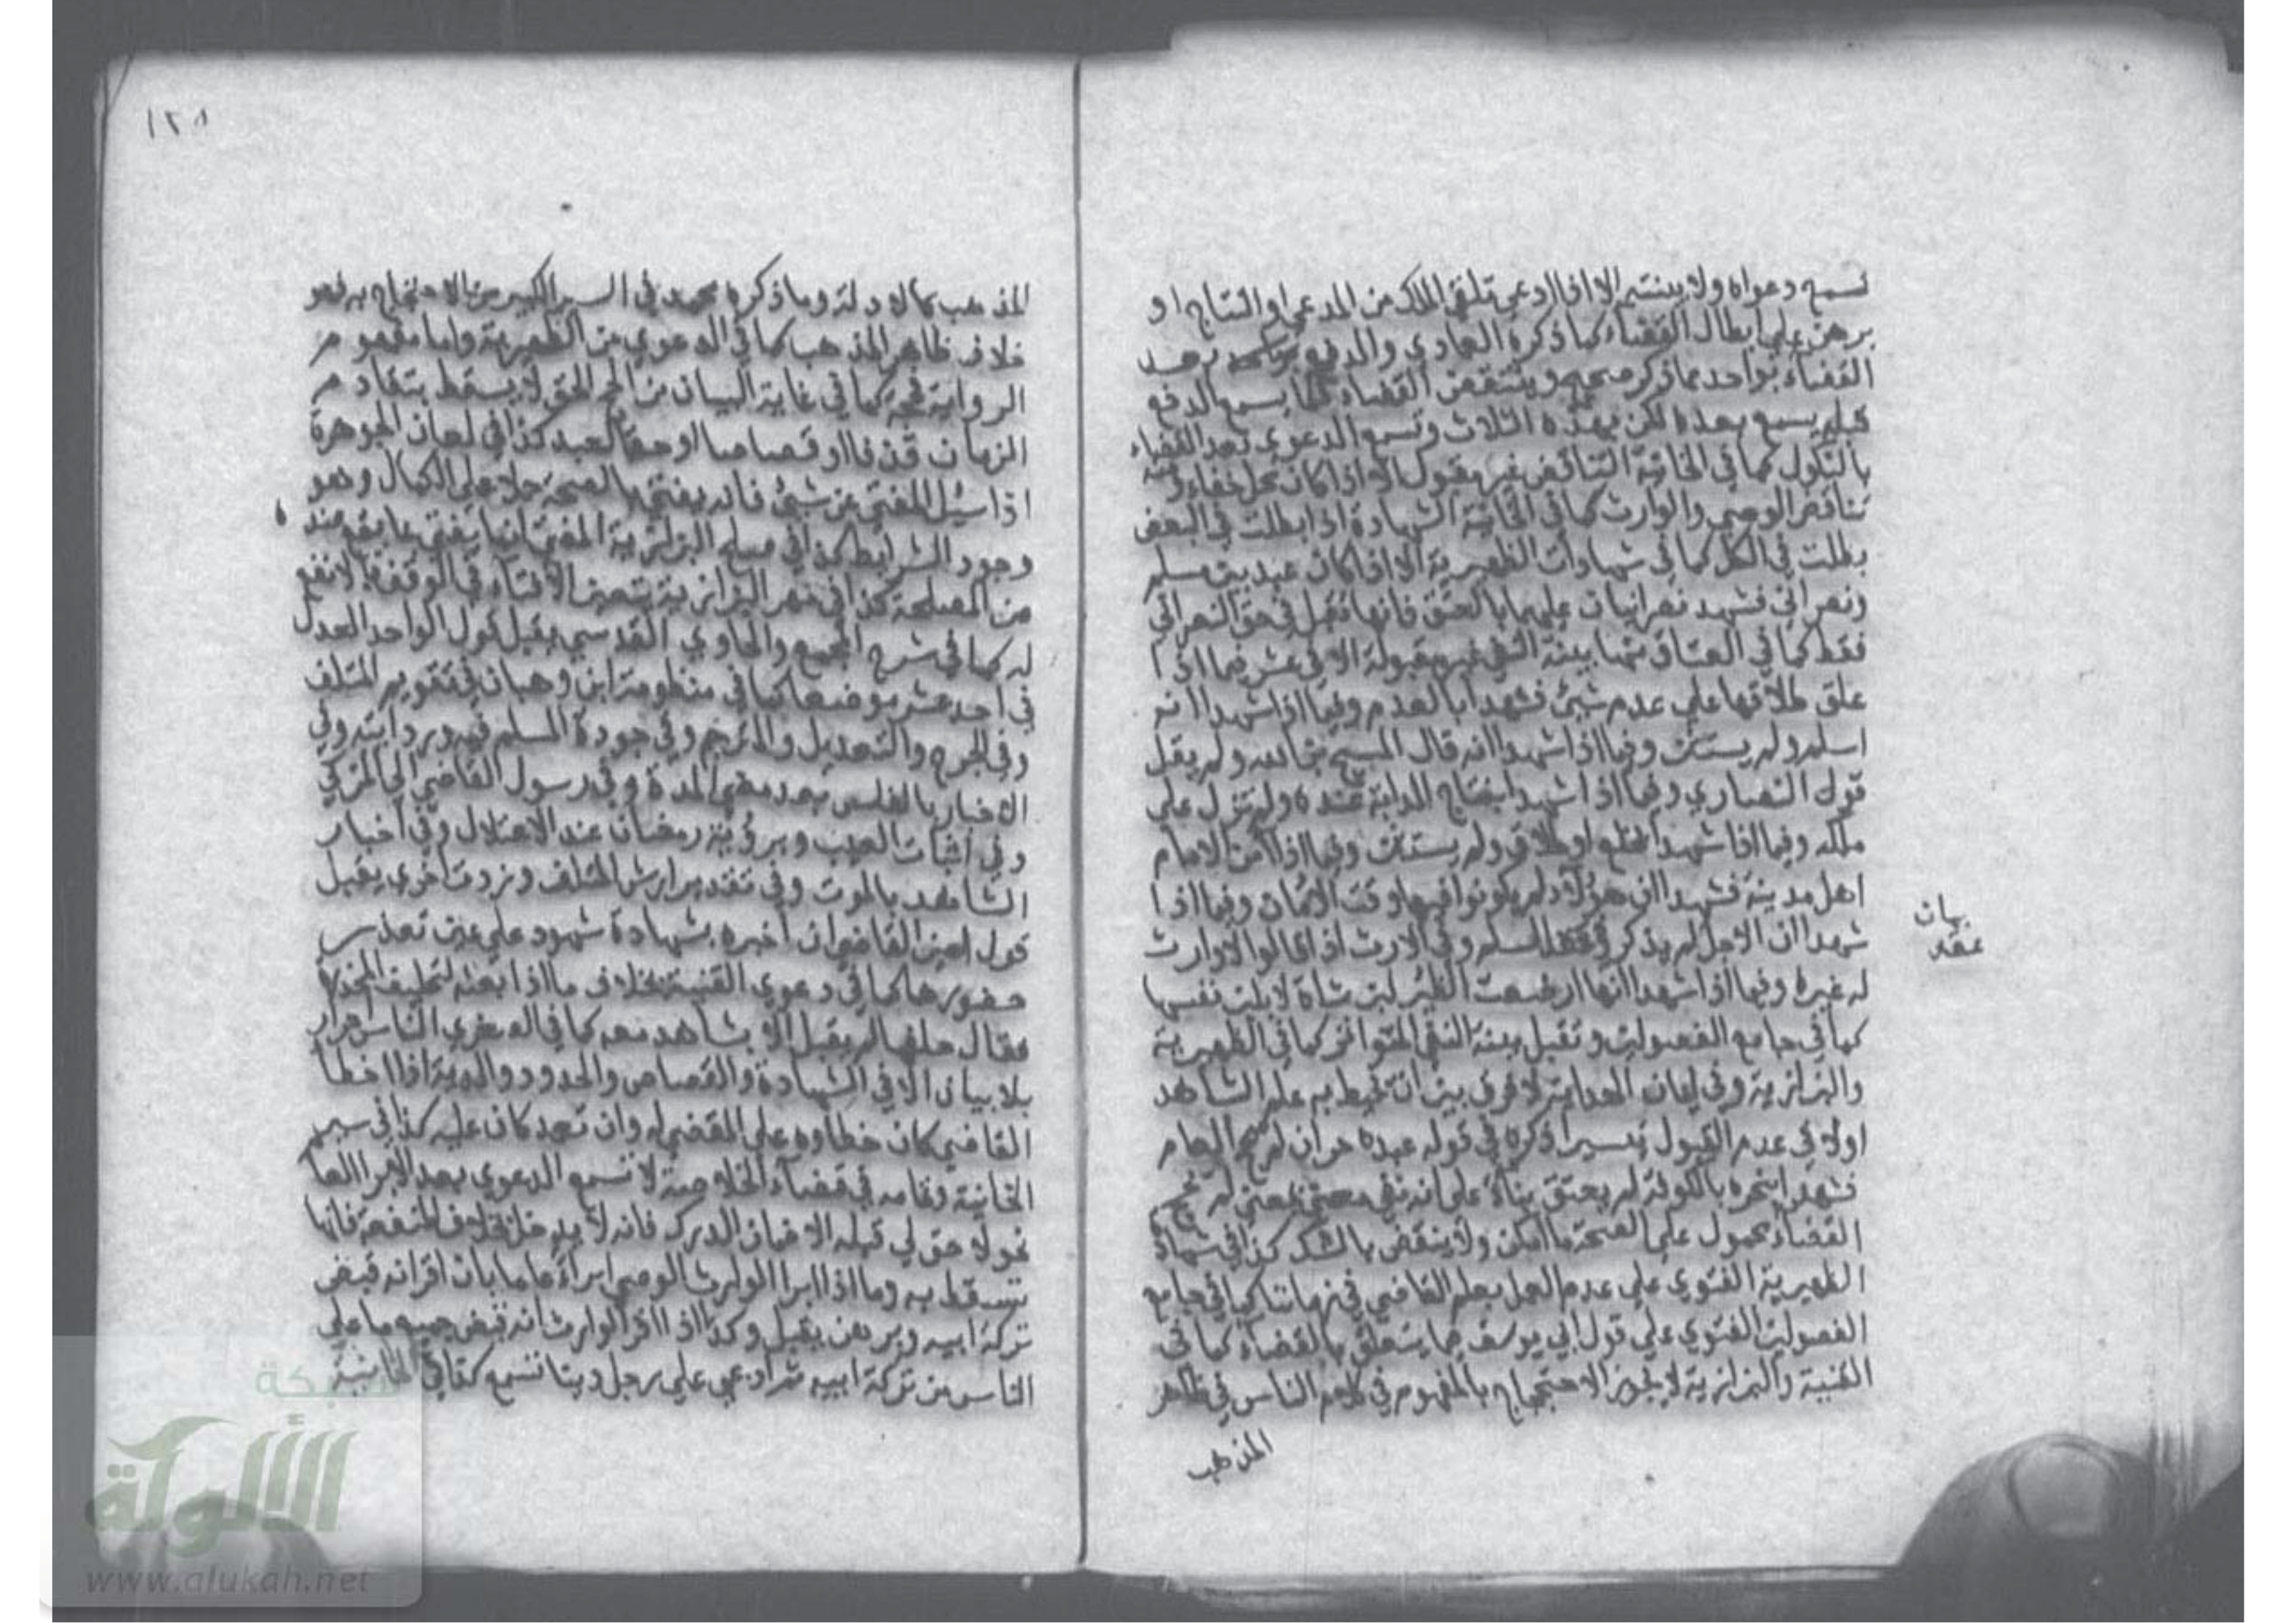 تسمع دعواه ولا ينتقض الا اذا ادعى تلقى الملك من المدعي او النتاج او
برهن على ابطال القضاء كما ذكره العمادي والدفع بعد
القضاء بواحد مما ذكر صحيح وينتقض القضاء كما يسمع الدفع
قبله يسمع بعده لكن بهذه الثلاث وتسمع الدعوى بعد القضاء
بالنكول كما في الخانية التناقض غير مقبول الا اذا كان محل خفاء ومنه
تناقض الوصي والوارث كما في الخانية الشهادة اذا بطلت في البعض
بطلت في الكل كما في شهادات الظهيرية الا اذا كان عبد بين مسلم
ونصراني فشهد نصرانيان عليهما بالعتق فانها تقبل في حق النصراني
فقط كما في العتاق منها بينة النفي غير مقبولة الا في عشر فيما اذا
علق طلاقها على عدم شيئ فشهدا بالعدم وفيما اذا شهدا انه
اسلم ولم يستثن وفيما اذا شهدا انه قال المسيح ابن الله ولم يقل
قول النصارى وفيما اذا شهدا بنتاج الدابة عنده ولم تزل على
ملكه وفيما اذا شهدا بخلع او طلاق ولم يستثن وفيما اذا امن الامام
اهل مدينة فشهدا ان هؤلاء لم يكونوا فيها وقت الامان وفيما اذا
شهدا ان الاجل لم يذكر في عقد السلم وفي الارث اذا قالوا لا وارث
له غيره وفيما اذا شهدا انها ارضعت الظئر لبن شاة لا بلبن نفسها
كما في جامع الفصولين وتقبل بينة النفي المتواتر كما في الظهيرية
والبزازية وفي ايمان الهداية لا فرق بين ان يحيط به علم الشاهد
اولا في عدم القبول تيسيرا ذكره في قوله عبده حر ان لم يحج العام
فشهدا بنحره بالكوفة لم يعتق بناء على انه نفي معنى بمعنى لم يحج
القضاء محمول على الصحة ما امكن ولا ينقض بالشك كذا في شهادة
الظهيرية الفتوى على عدم العمل بعلم القاضي في زماننا كما في جامع
الفصولين الفتوى على قول ابي يوسف فيما يتعلق بالقضاء كما في
القنية والبزازية لا يجوز الاحتجاج بالمفهوم في كلام الناس في ظاهر
المذهب
بيان
عقد
١٢٨
المذهب كالادلة وما ذكره محمد في السير الكبير من الاحتجاج به فهو
خلاف ظاهر المذهب كما في الدعوى من الظهيرية واما مفهوم
الرواية فحجة كما في غاية البيان من الحج الحق لا يسقط بتقادم
الزمان قذفا او قصاصا او حقا لعبد كذا في لعان الجوهرة
اذا سئل المفتي عن شيئ فانه يفتي بالصحة حملا على الكمال وهو
وجود الشرايط كذا في صلح البزازية المفتي انما يفتي بما يقع عنده
من المصلحة كذا في مهر البزازية يتعين الافتاء في الوقف بالانفع
له كما في شرح المجمع والحاوي القدسي يقبل قول الواحد العدل
في احد عشر موضعا كما في منظومة ابن وهبان في تقويم المتلف
وفي الجرح والتعديل والمترجم وفي جودة المسلم فيه ورداءته وفي
الاخبار بالفلس بعد مضي المدة وفي رسول القاضي الى المزكي
وفي اثبات العيب وبرؤية رمضان عند الاعتلال وفي اخبار
الشاهد بالموت وفي تقدير ارش المتلف وزدت اخرى يقبل
قول امين القاضي ان اخبره بشهادة شهود على عين تعذر
حضورها كما في دعوى القنية بخلاف ما اذا بعثه لتحليف المخدرة
فقال حلفتها لم يقبل الا بشاهد معه كما في الصغرى الناس احرار
بلا بيان الا في الشهادة والقصاص والحدود والدية اذا اخطا
القاضي كان خطاؤه على المقضي له وان تعمد كان عليه كذا في سير
الخانية وتمامه في قضاء الخلاصة لا تسمع الدعوى بعد الابراء العا
نحو لا حق لي قبله الا ضمان الدرك فانه لا يدخل بخلاف الشفعة فانها
تسقط به وما اذا ابرا الوارث الوصي ابراء عاما بان اقر انه قبض
تركة ابيه وبرهن يقبل وكذا اذا اقر الوارث انه قبض جميع ما على
الناس من تركة ابيه ثم ادعى على رجل دينا تسمع كذا في الخانية
شبكة
الألوكة
www.alukah.net